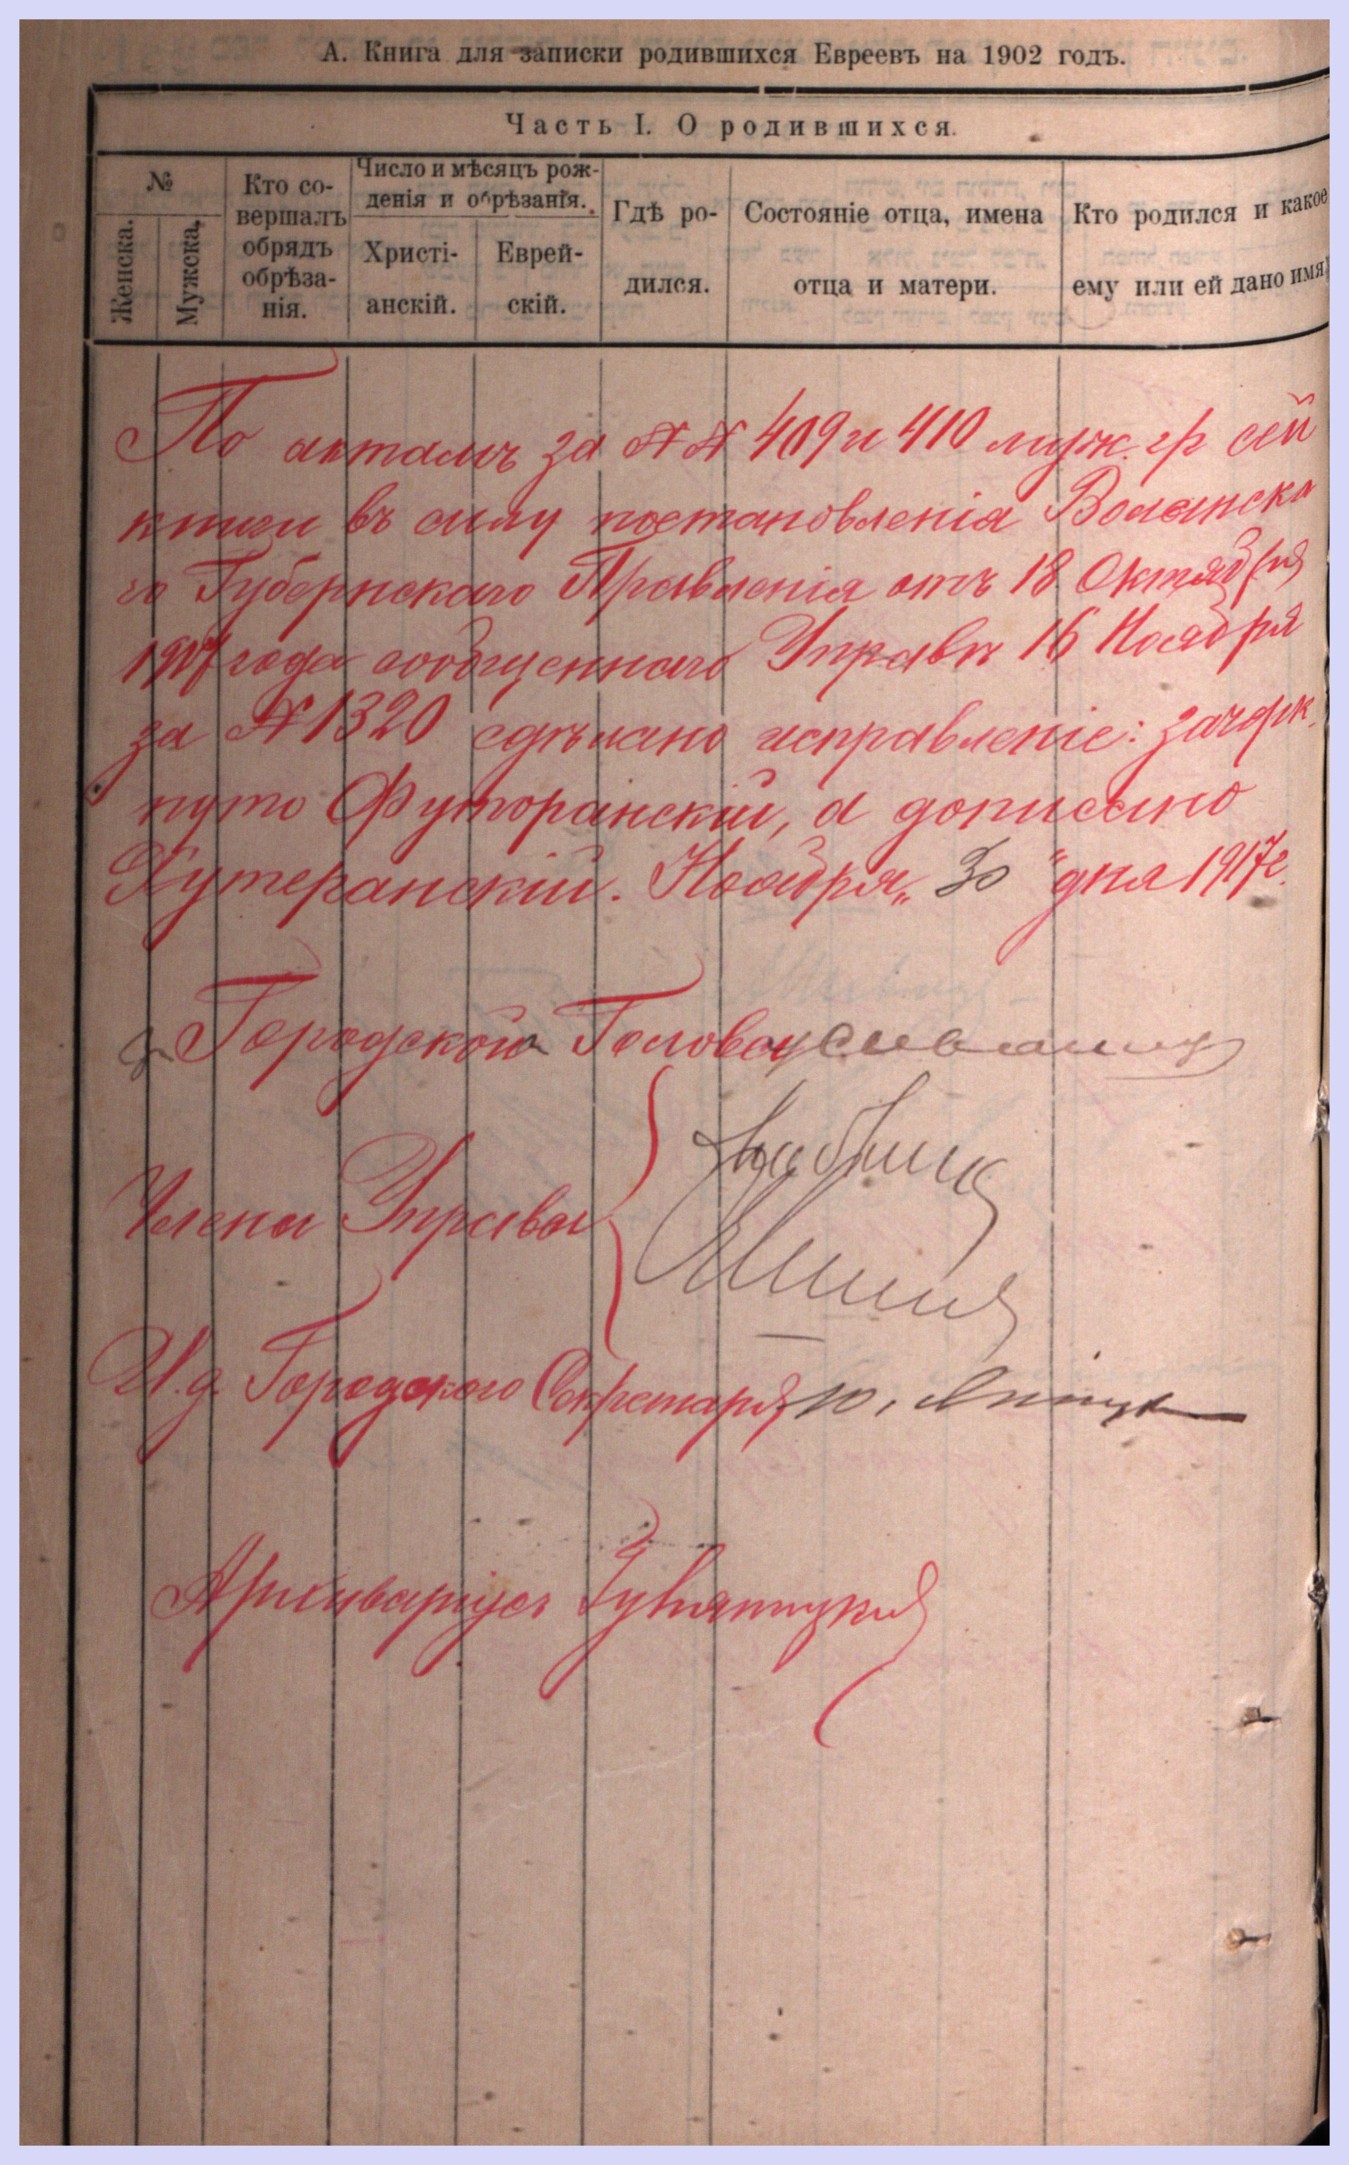 А. Книга для записки родившихся Евреевъ на 1902 годъ.
Часть I. О родившихся.
№
Женска.
Мужска.
Кто со-
вершалъ
обрядъ
обрѣза-
нія.
Число и мѣсяцъ рож-
денія и обрѣзанія.
Христі-
анскій.
Еврей-
скій.
Гдѣ ро-
дился.
Состояніе отца, имена
отца и матери.
Кто родился и какое
ему или ей дано имя.
По актамъ за №№ 409 и 410 муж. гр сей
книги въ силу постановленія Волынска
го Губернскаго Правленія отъ 18 Октября
1917 года сообщеннаго Управѣ 16 Ноября
за № 1320 сдѣлано исправленіе: зачерк
нуто Футоранскій, а дописано
Хутеранскій. Ноября „30" дня 1917 г.
Городской Голова
Члены Управы
И.д. Городского Секретаря
Архиваріусъ